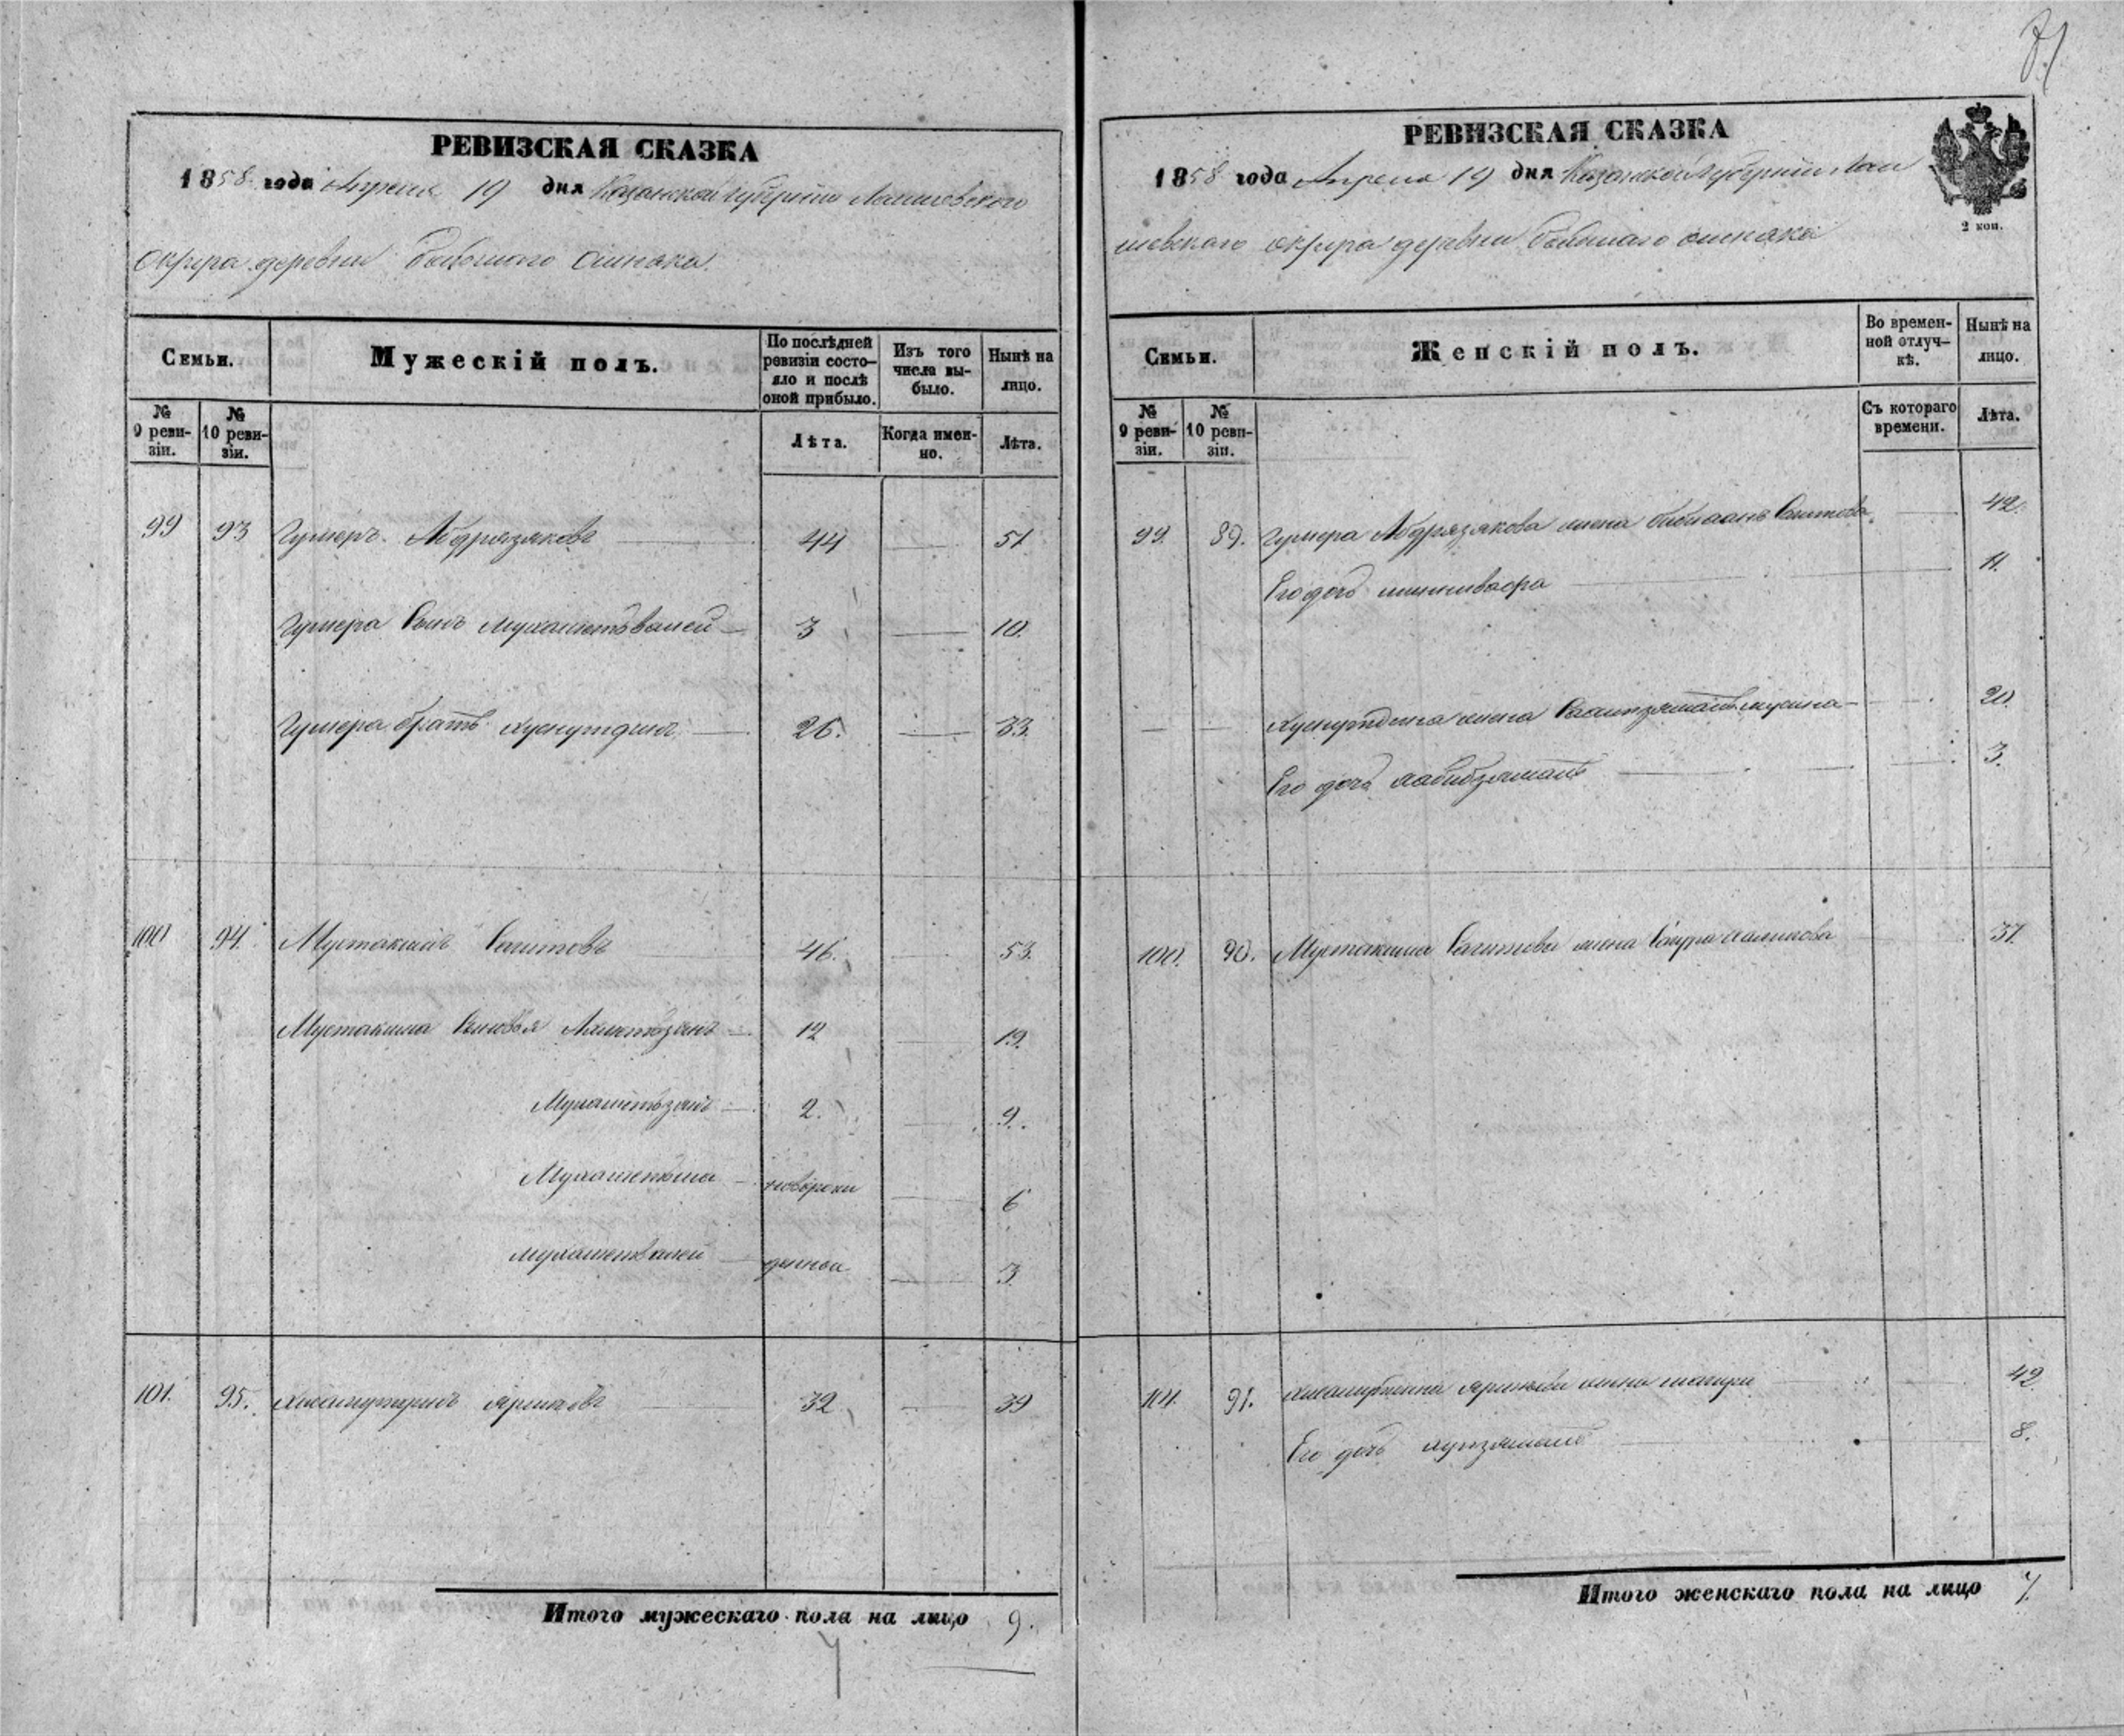 71
РЕВИЗСКАЯ СКАЗКА
1858 года Апреля 19 дня Казанской Губернии Лаишевского
округа деревни Большого
Семьи.
Мужескій полъ.
По послѣдней ревизіи состояло и послѣ оной прибыло.
Изъ того числа выбыло.
Нынѣ на лицо.
№ 9 ревизіи.
№ 10 ревизіи.
Лѣта.
Когда именно.
Лѣта.
99 93 Гумеръ Абдрязяковъ 44 51
Гумера Сынъ Мухаметвалей 3 10.
Гумера братъ Хуснутдинъ 26. 33.
100 94. Мустакимъ Сагитовъ 46. 53.
Мустакима Сыновья Ахметзянъ 12 19.
Мухаметзянъ 2. 9.
новорож 6
Мухаметвалей денныя 3.
101. 95. 32 39
Итого мужескаго пола на лицо 9.
РЕВИЗСКАЯ СКАЗКА
1858 года Апреля 19 дня Казанской Губернии Лаи
шевскаго округа деревни Большаго
2 коп.
Семьи.
Женскій полъ.
Во временной отлучкѣ.
Нынѣ на лицо.
№ 9 ревизіи.
№ 10 ревизіи.
Съ котораго времени.
Лѣта.
99. 89. Гумера Абдрязякова жена 42.
Его дочь 11.
Хуснутдина жена 20
Его дочь 3.
100. 90. Мустакима Сагитова жена 37.
101. 91. жена 42
Его дочь 8.
Итого женскаго пола на лицо 7.